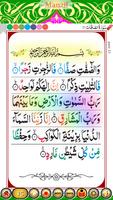 Manzil
بِسْمِ اللهِ الرَّحْمٰنِ الرَّحِيْمِ
وَالصّٰٓفّٰتِ صَفًّا فَالزّٰجِرٰتِ زَجْرًا
فَالتّٰلِيٰتِ ذِكْرًا اِنَّ اِلٰهَكُمْ لَوَاحِدٌ
رَبُّ السَّمٰوٰتِ وَالْاَرْضِ وَمَا بَيْنَهُمَا
وَرَبُّ الْمَشَارِقِ اِنَّا زَيَّنَّا السَّمَآءَ
الدُّنْيَا بِزِيْنَةِ الْكَوَاكِبِ وَحِفْظًا
مِّنْ كُلِّ شَيْطٰنٍ مَّارِدٍ